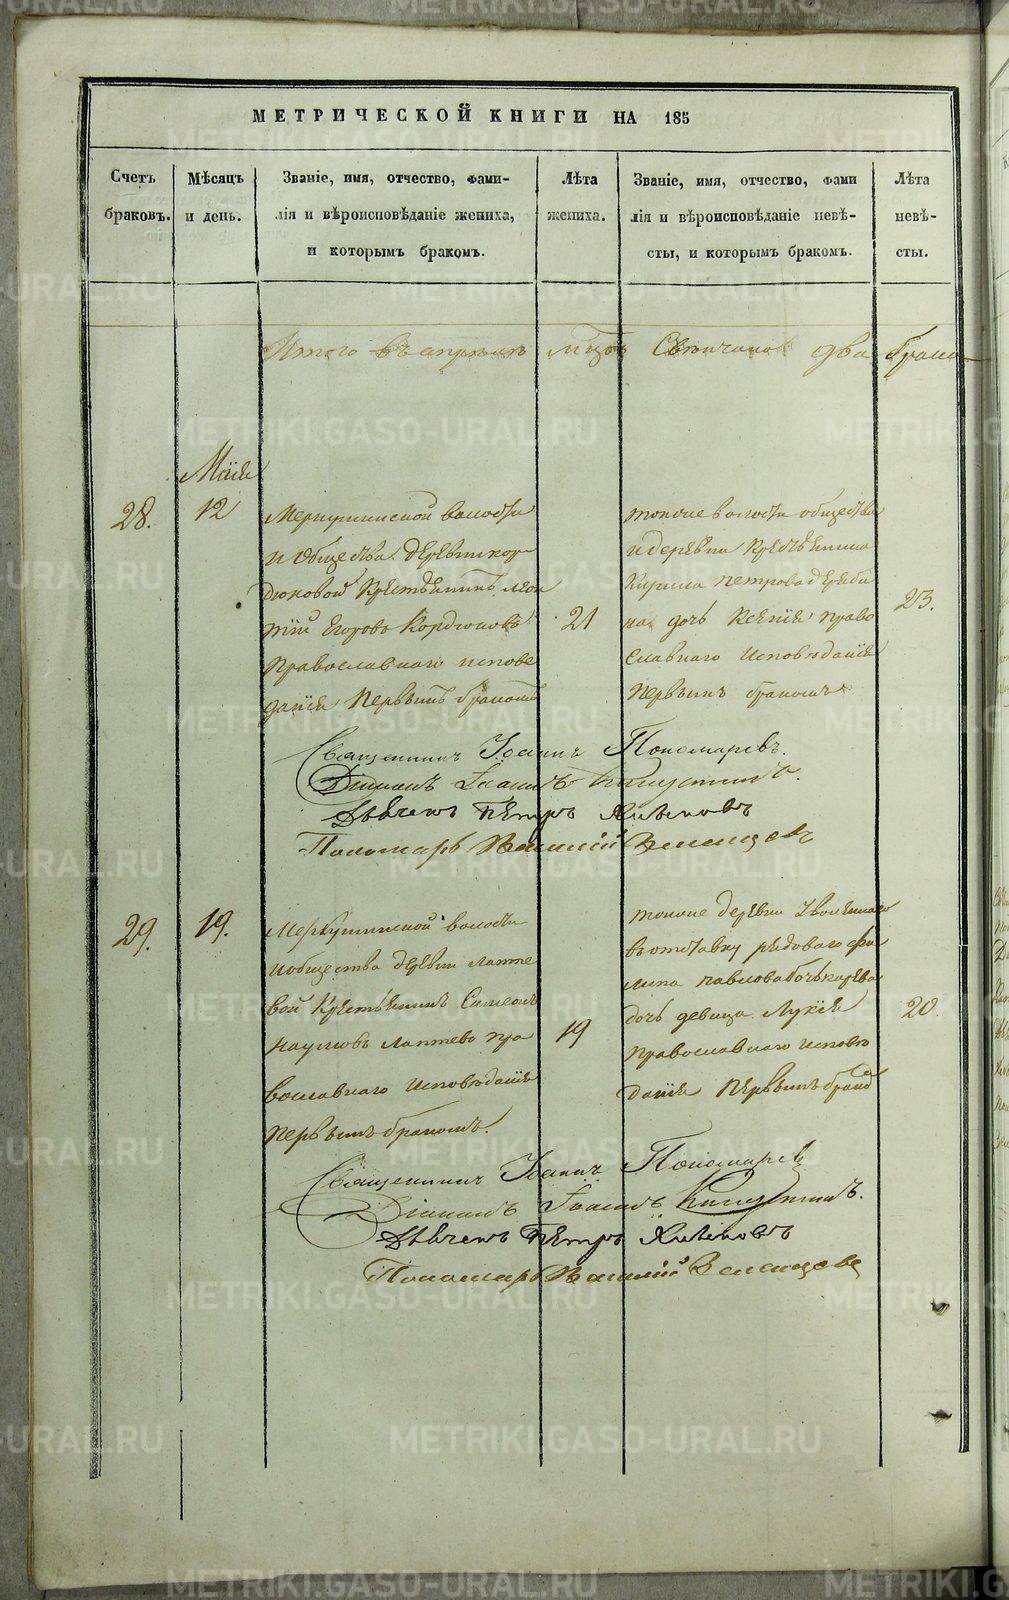 МЕТРИЧЕСКОЙ КНИГИ НА 185
Счетъ браковъ.
Мѣсяцъ и день.
Званіе, имя, отчество, фами-
лія и вѣроисповѣданіе жениха,
и которымъ бракомъ.
Лѣта жениха.
Званіе, имя, отчество, фами
лія и вѣроисповѣданіе невѣ-
сты, и которымъ бракомъ.
Лѣта невѣ-
сты.
Итого въ апрѣлѣ мцѣ Свенчано два брака
Маія
28.
12
Меркушинской волости
и Общества деревни кор
дюковой Крестьянинъ леон
тій Егоровъ Кордюковъ
Православнаго испове
данія Первымъ бракомъ
21
тойже волости общества
и деревни Крестьянина
Кирила петрова
дочь Ксенія право
славнаго Исповѣданія
Первымъ бракомъ
23.
Священникъ Іоаннъ Пономаревъ.
Діаконъ Іоаннъ
Дьячекъ Петръ Хиляковъ
Пономарь Василій
29.
19.
Меркушинской волости
и общества деревни лапте
вой Крестьянинъ Симеонъ
Наумовъ Лаптевъ пра
вославнаго Исповѣданія
Первымъ бракомъ.
19
тойже деревни Уволеннаго
въ отставку рядоваго фи
липа павлова бочькарева
дочь девица Лукія
Православнаго Исповѣ
данія Первымъ бракомъ
20.
Священникъ Іоаннъ Пономаревъ
Діаконъ Іоаннъ
Дьячекъ Петръ Хиляковъ
Пономарь Василій
METRIKI.GASO-URAL.RU